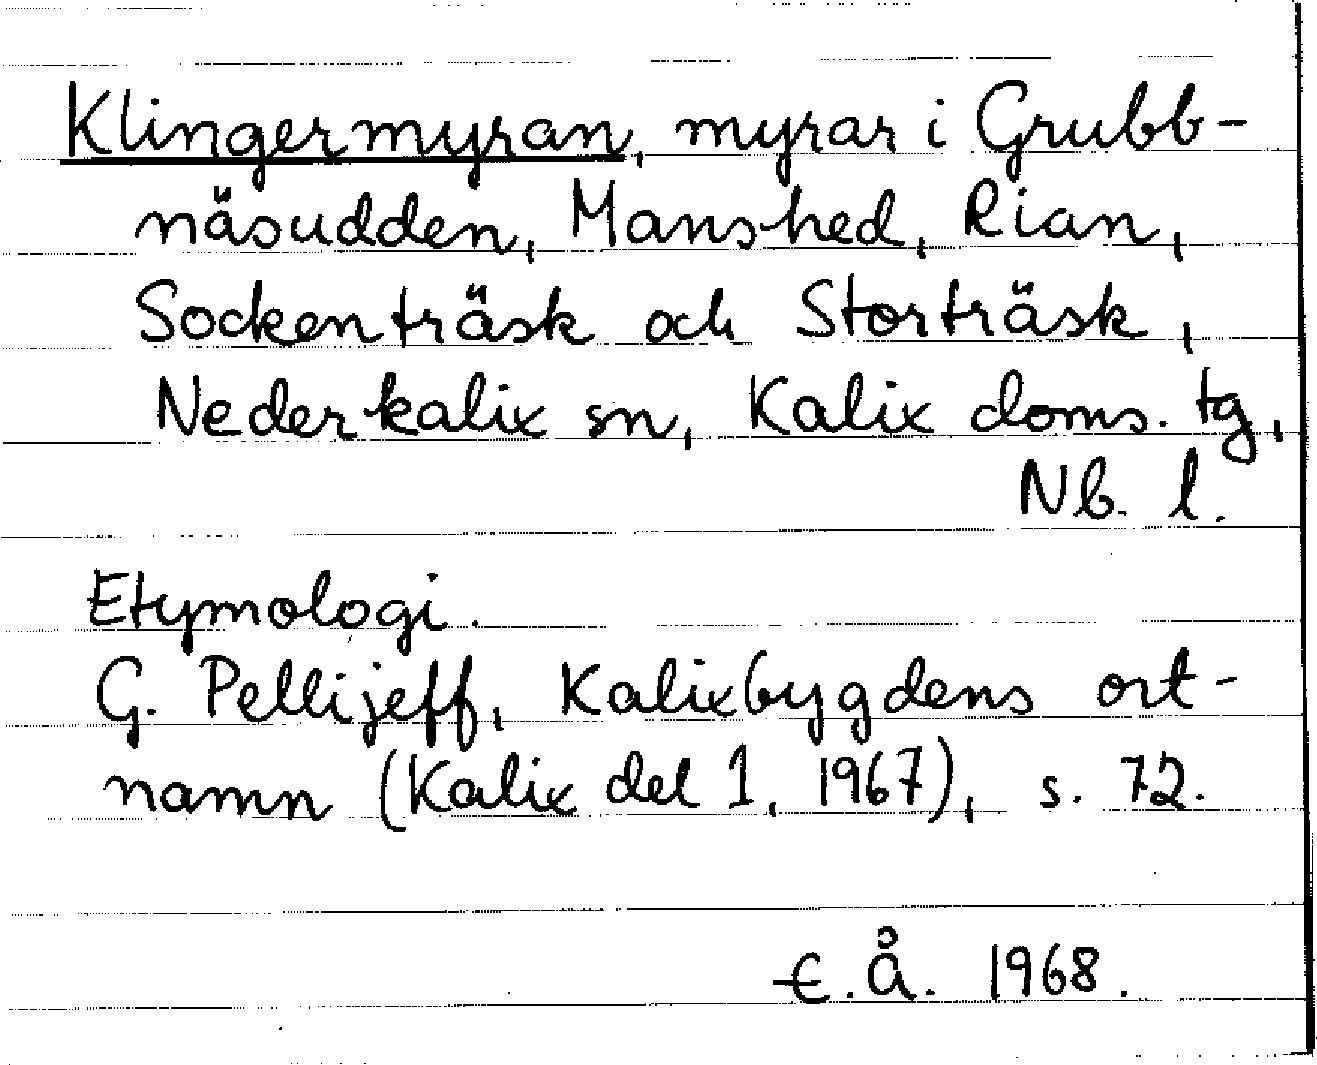 Klingermyran, myrar i Grubb-
näsudden, Manshed, Rian,
Sockenträsk och Storträsk,
Nederkalix sn, Kalix doms. tg,
Nb. l.
Etymologi.
G. Pellijeff, Kalixbygdens ort-
namn (Kalix del 1, 1967), s. 72.
E.Å. 1968.